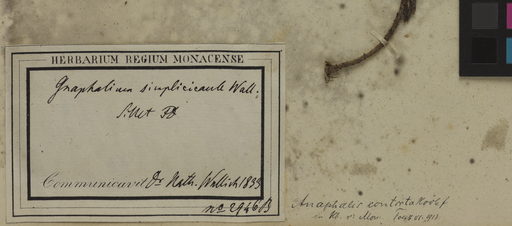 HERBARIUM REGIUM MONACENSE
Gnaphalium simplicicaule Wall;
Sillet FB
Communicavit Dr. Nath. Wallich 1833
no 2946B
Anaphalis contorta Hook f